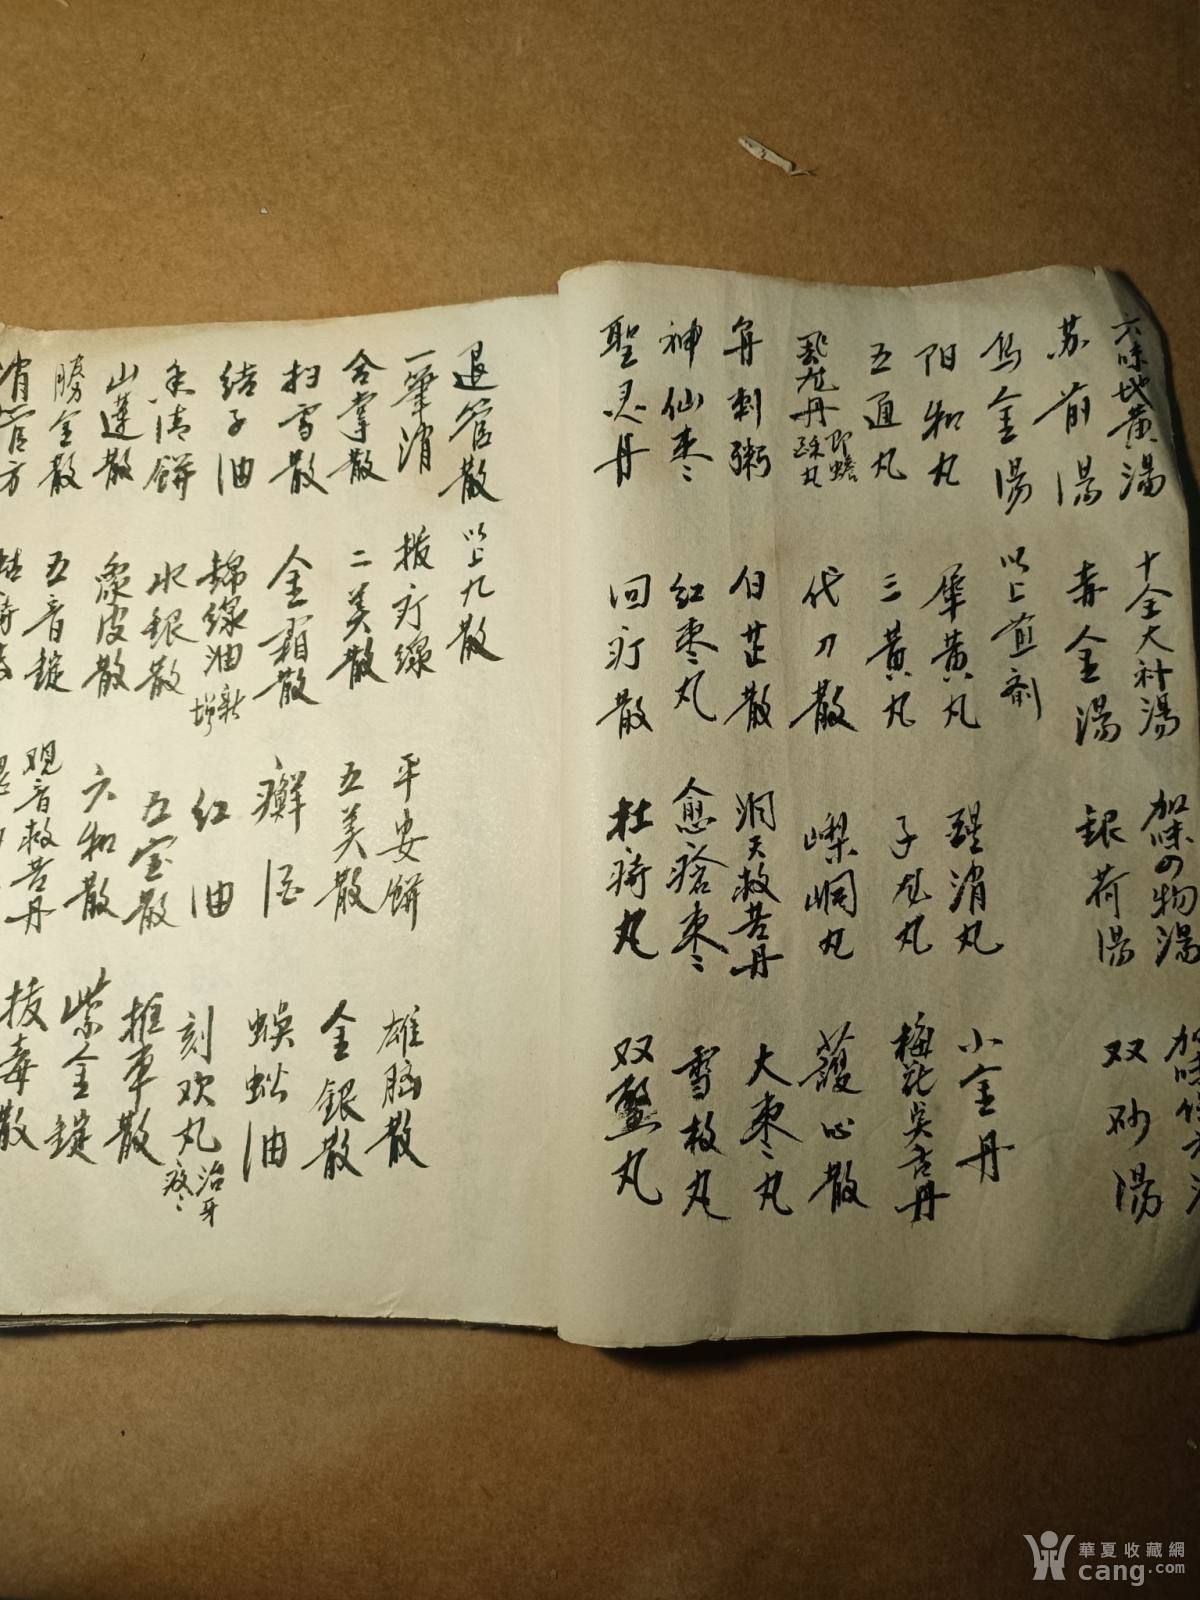 六味地黄湯 十全大补湯 加味四物湯 加味
苏前湯 赤金湯 銀荷湯 双砂湯
烏金湯 以上煎剤
阳和丸 犀黄丸 醒消丸 小金丹
五通丸 三黄丸 子龙丸 梅花吴舌丹
飛龙丹 即蟾酥丸 代刀散 嶑峒丸 護心散
角刺粥 白芷散 洞天救苦丹 大枣丸
神仙枣 红枣丸 愈瘡枣 雪枝丸
聖灵丹 回疔散 杜痔丸 双螯丸
退管散 以上九散
一筆消 拔疔線 平安餅 雄脑散
合掌散 二美散 五美散 金銀散
扫雪散 金霜散 癬酒 蜈蚣油
结子油 錦線油 新增 红油 刻欢丸 治牙疼
香清餅 水銀散 五宝散 推車散
山蓮散 象皮散 六和散 紫金錠
勝金散 五音錠 观音救苦丹 拔毒散
消管方
華夏收藏網
cang.com